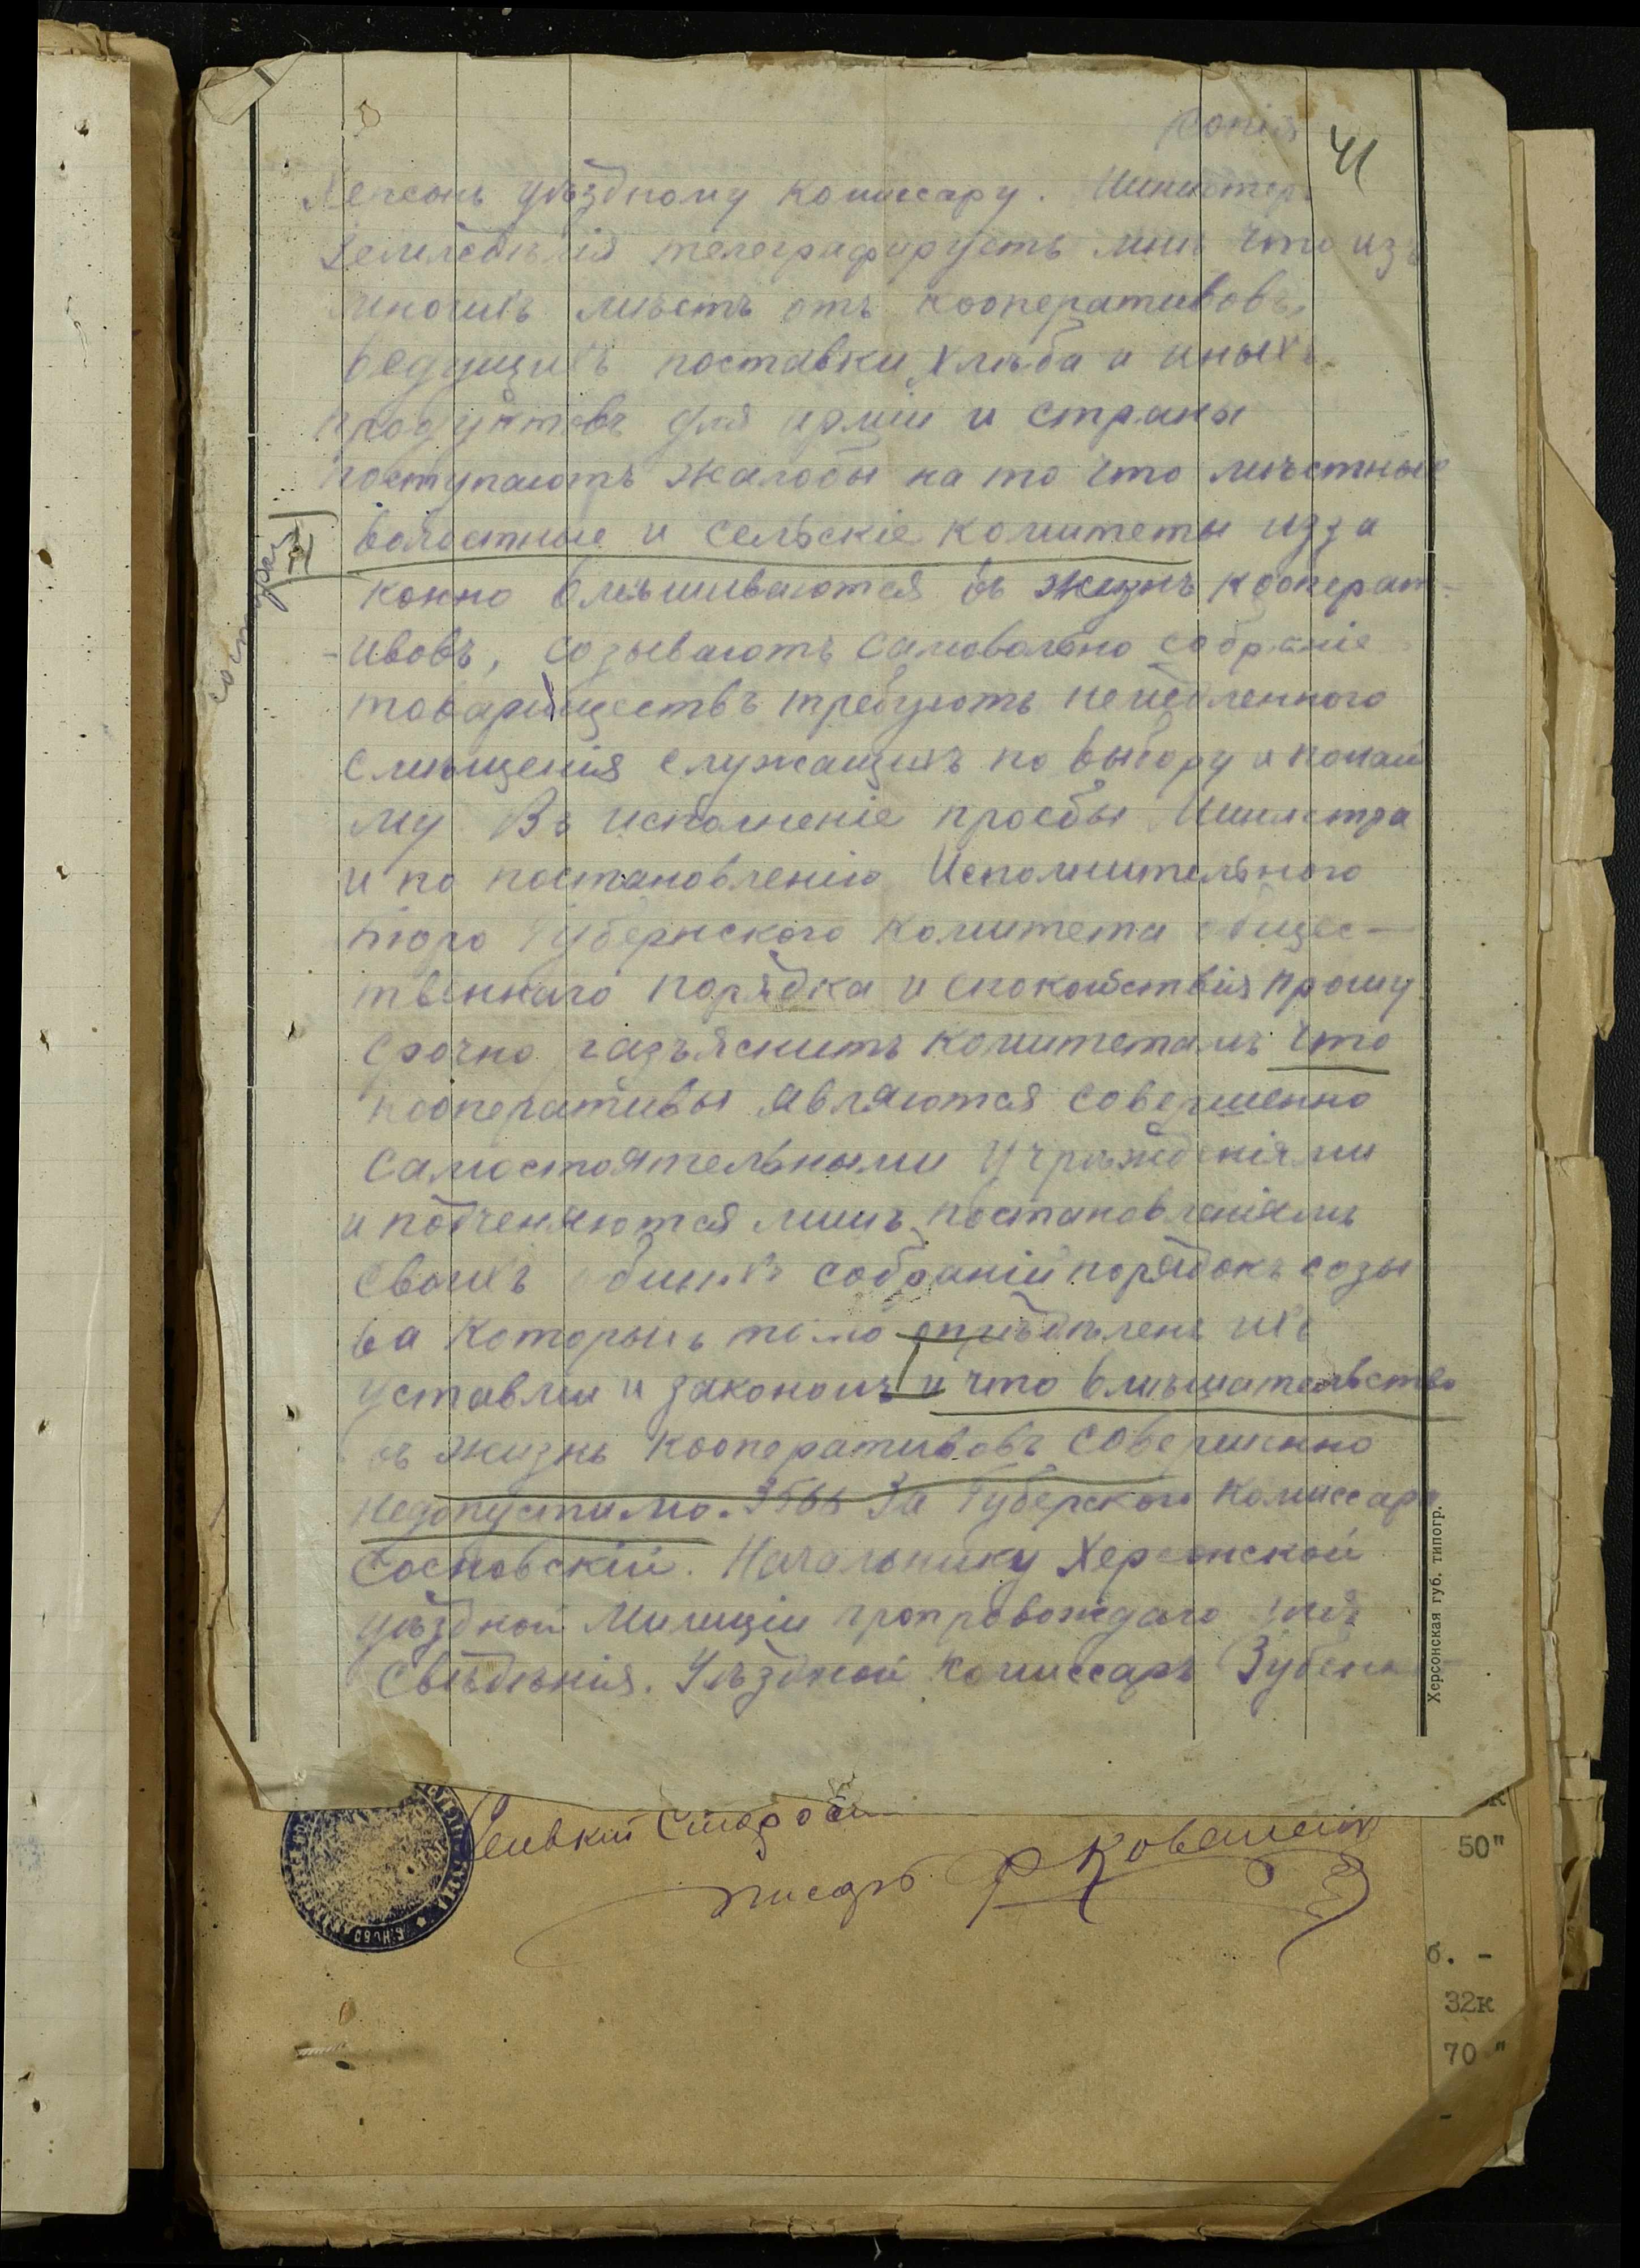 Копія
41
Херсонъ уѣздному комиссару. Министеръ
Земледѣлія телеграфируетъ мнѣ что изъ
многихъ мѣстъ отъ кооперативовъ,
ведущихъ поставки хлѣба и иныхъ
продуктовъ для арміи и страны
поступаютъ жалобы на то что мѣстные
волостные и сельскіе комитеты изза
конно вмѣшиваются въ жизнь кооперат-
-ивовъ, созываютъ самовольно собраніе
товариществъ требуютъ немедленного
смѣщенія служащихъ по выбору и понай
му Въ исполненіе просбы Министра
и по постановленію Исполнительного
бюро Губернского комитета общес-
твеннаго порядка и спокойствія прошу
срочно разъяснить комитетамъ что
кооперативы являются совершенно
самостоятельными учрежденіями
и подченяются лишь постановленіямъ
своихъ общихъ собраній порядокъ созы
ва которыхъ опредѣленъ ихъ
уставам и закономъ и что вмѣшательство
въ жизнь кооперативовъ совершенно
недопустимо. За Губерского Комиссара
Сосновскій. Начальнику Херсонской
уѣздной Милиціи препровождаю для
свѣдѣнія. Уѣздной комиссаръ Зубенк
Херсонская губ. типогр.
Староста
писарь Ковалевик
50"
б. -
32к
70 "
-